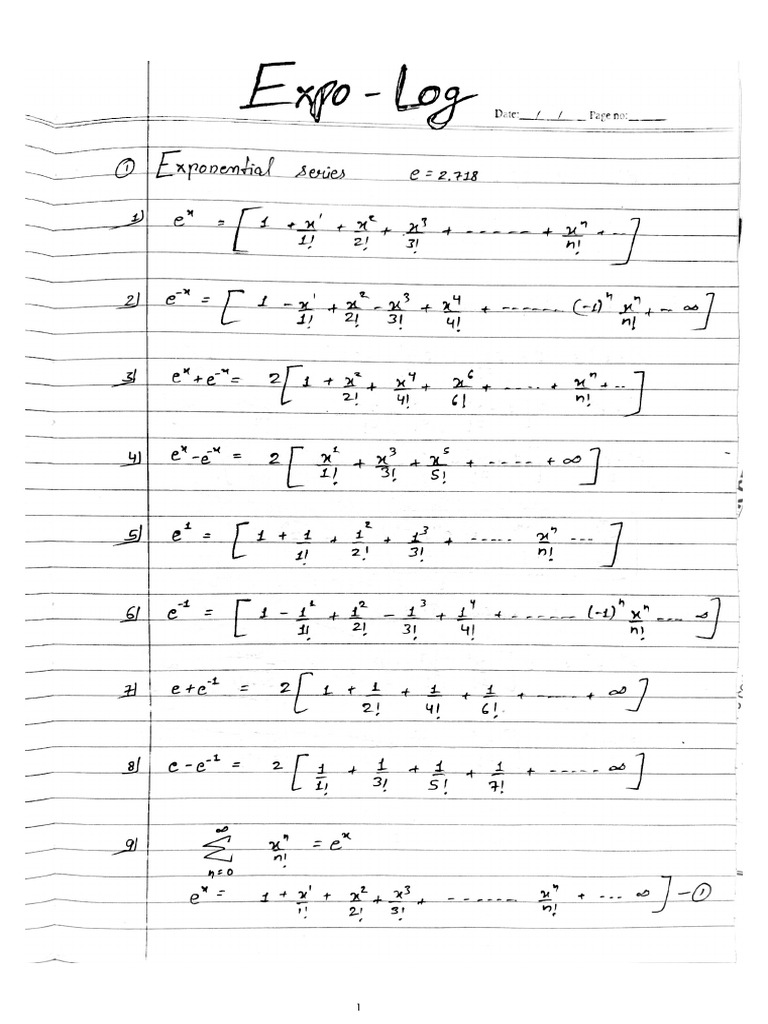 Expo - Log
Date: __/__/__ Page no: ____
① Exponential series e = 2.718
1) e^x = [ 1 + x^1/1! + x^2/2! + x^3/3! + ------ + x^n/n! + -- ]
2) e^-x = [ 1 - x^1/1! + x^2/2! - x^3/3! + x^4/4! + ------ (-1)^n x^n/n! + -- ∞ ]
3) e^x + e^-x = 2 [ 1 + x^2/2! + x^4/4! + x^6/6! + ---- + x^n/n! + -- ]
4) e^x - e^-x = 2 [ x^1/1! + x^3/3! + x^5/5! + ----- + ∞ ]
5) e^1 = [ 1 + 1/1! + 1^2/2! + 1^3/3! + ----- x^n/n! --- ]
6) e^-1 = [ 1 - 1^1/1! + 1^2/2! - 1^3/3! + 1^4/4! + ------ (-1)^n x^n/n! ---- ∞ ]
7) e + e^-1 = 2 [ 1 + 1/2! + 1/4! + 1/6! + ----- + ∞ ]
8) e - e^-1 = 2 [ 1/1! + 1/3! + 1/5! + 1/7! + ------ ∞ ]
9) ∞ Σ n=0 x^n/n! = e^x
e^x = 1 + x^1/1! + x^2/2! + x^3/3! + ------- x^n/n! + --- ∞ ] - ①
1